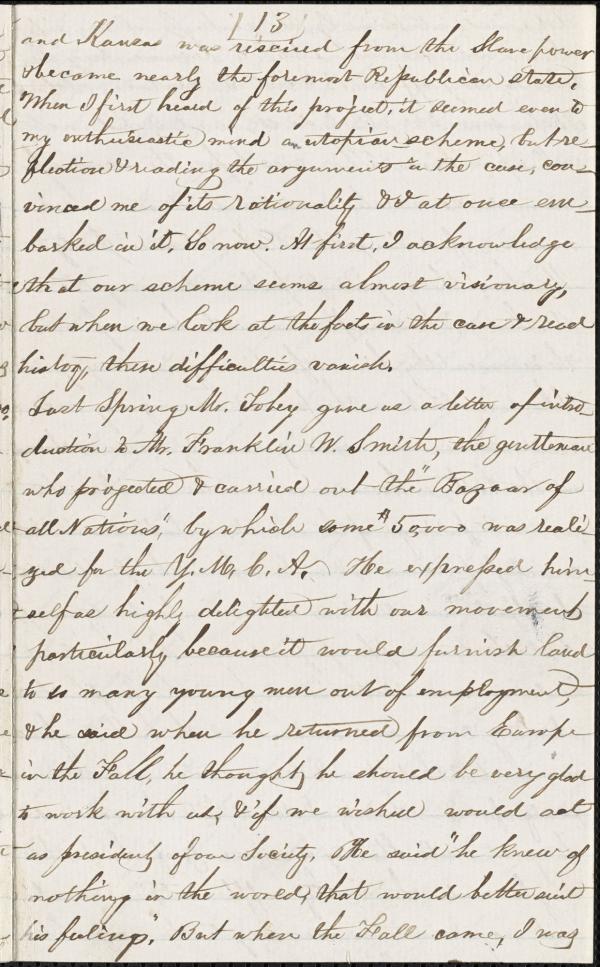 13
and Kansas was rescued from the Slave power
& became nearly the foremost Republican state.
When I first heard of this project, it seemed even to
my enthusiastic mind an utopian scheme, but re-
flection & reading the arguments in the case, con-
vinced me of its rationality & I at once em-
barked in it. So now. At first, I acknowledge
that our scheme seems almost visionary,
but when we look at the facts in the case & read
history, these difficulties vanish.
Last Spring Mr. Tobey gave us a letter of intro-
duction to Mr. Franklin W. Smith, the gentleman
who projected & carried out the "Bazaar of
all Nations", by which some $50,000 was reali-
zed for the Y. M. C. A. He expressed him-
self as highly delighted with our movement
particularly because it would furnish land
to so many young men out of employment,
& he said when he returned from Europe
in the Fall, he thought he should be very glad
to work with us, & if we wished would act
as president of our Society. He said "he knew of
nothing in the world, that would better suit
his feelings". But when the Fall came, I was